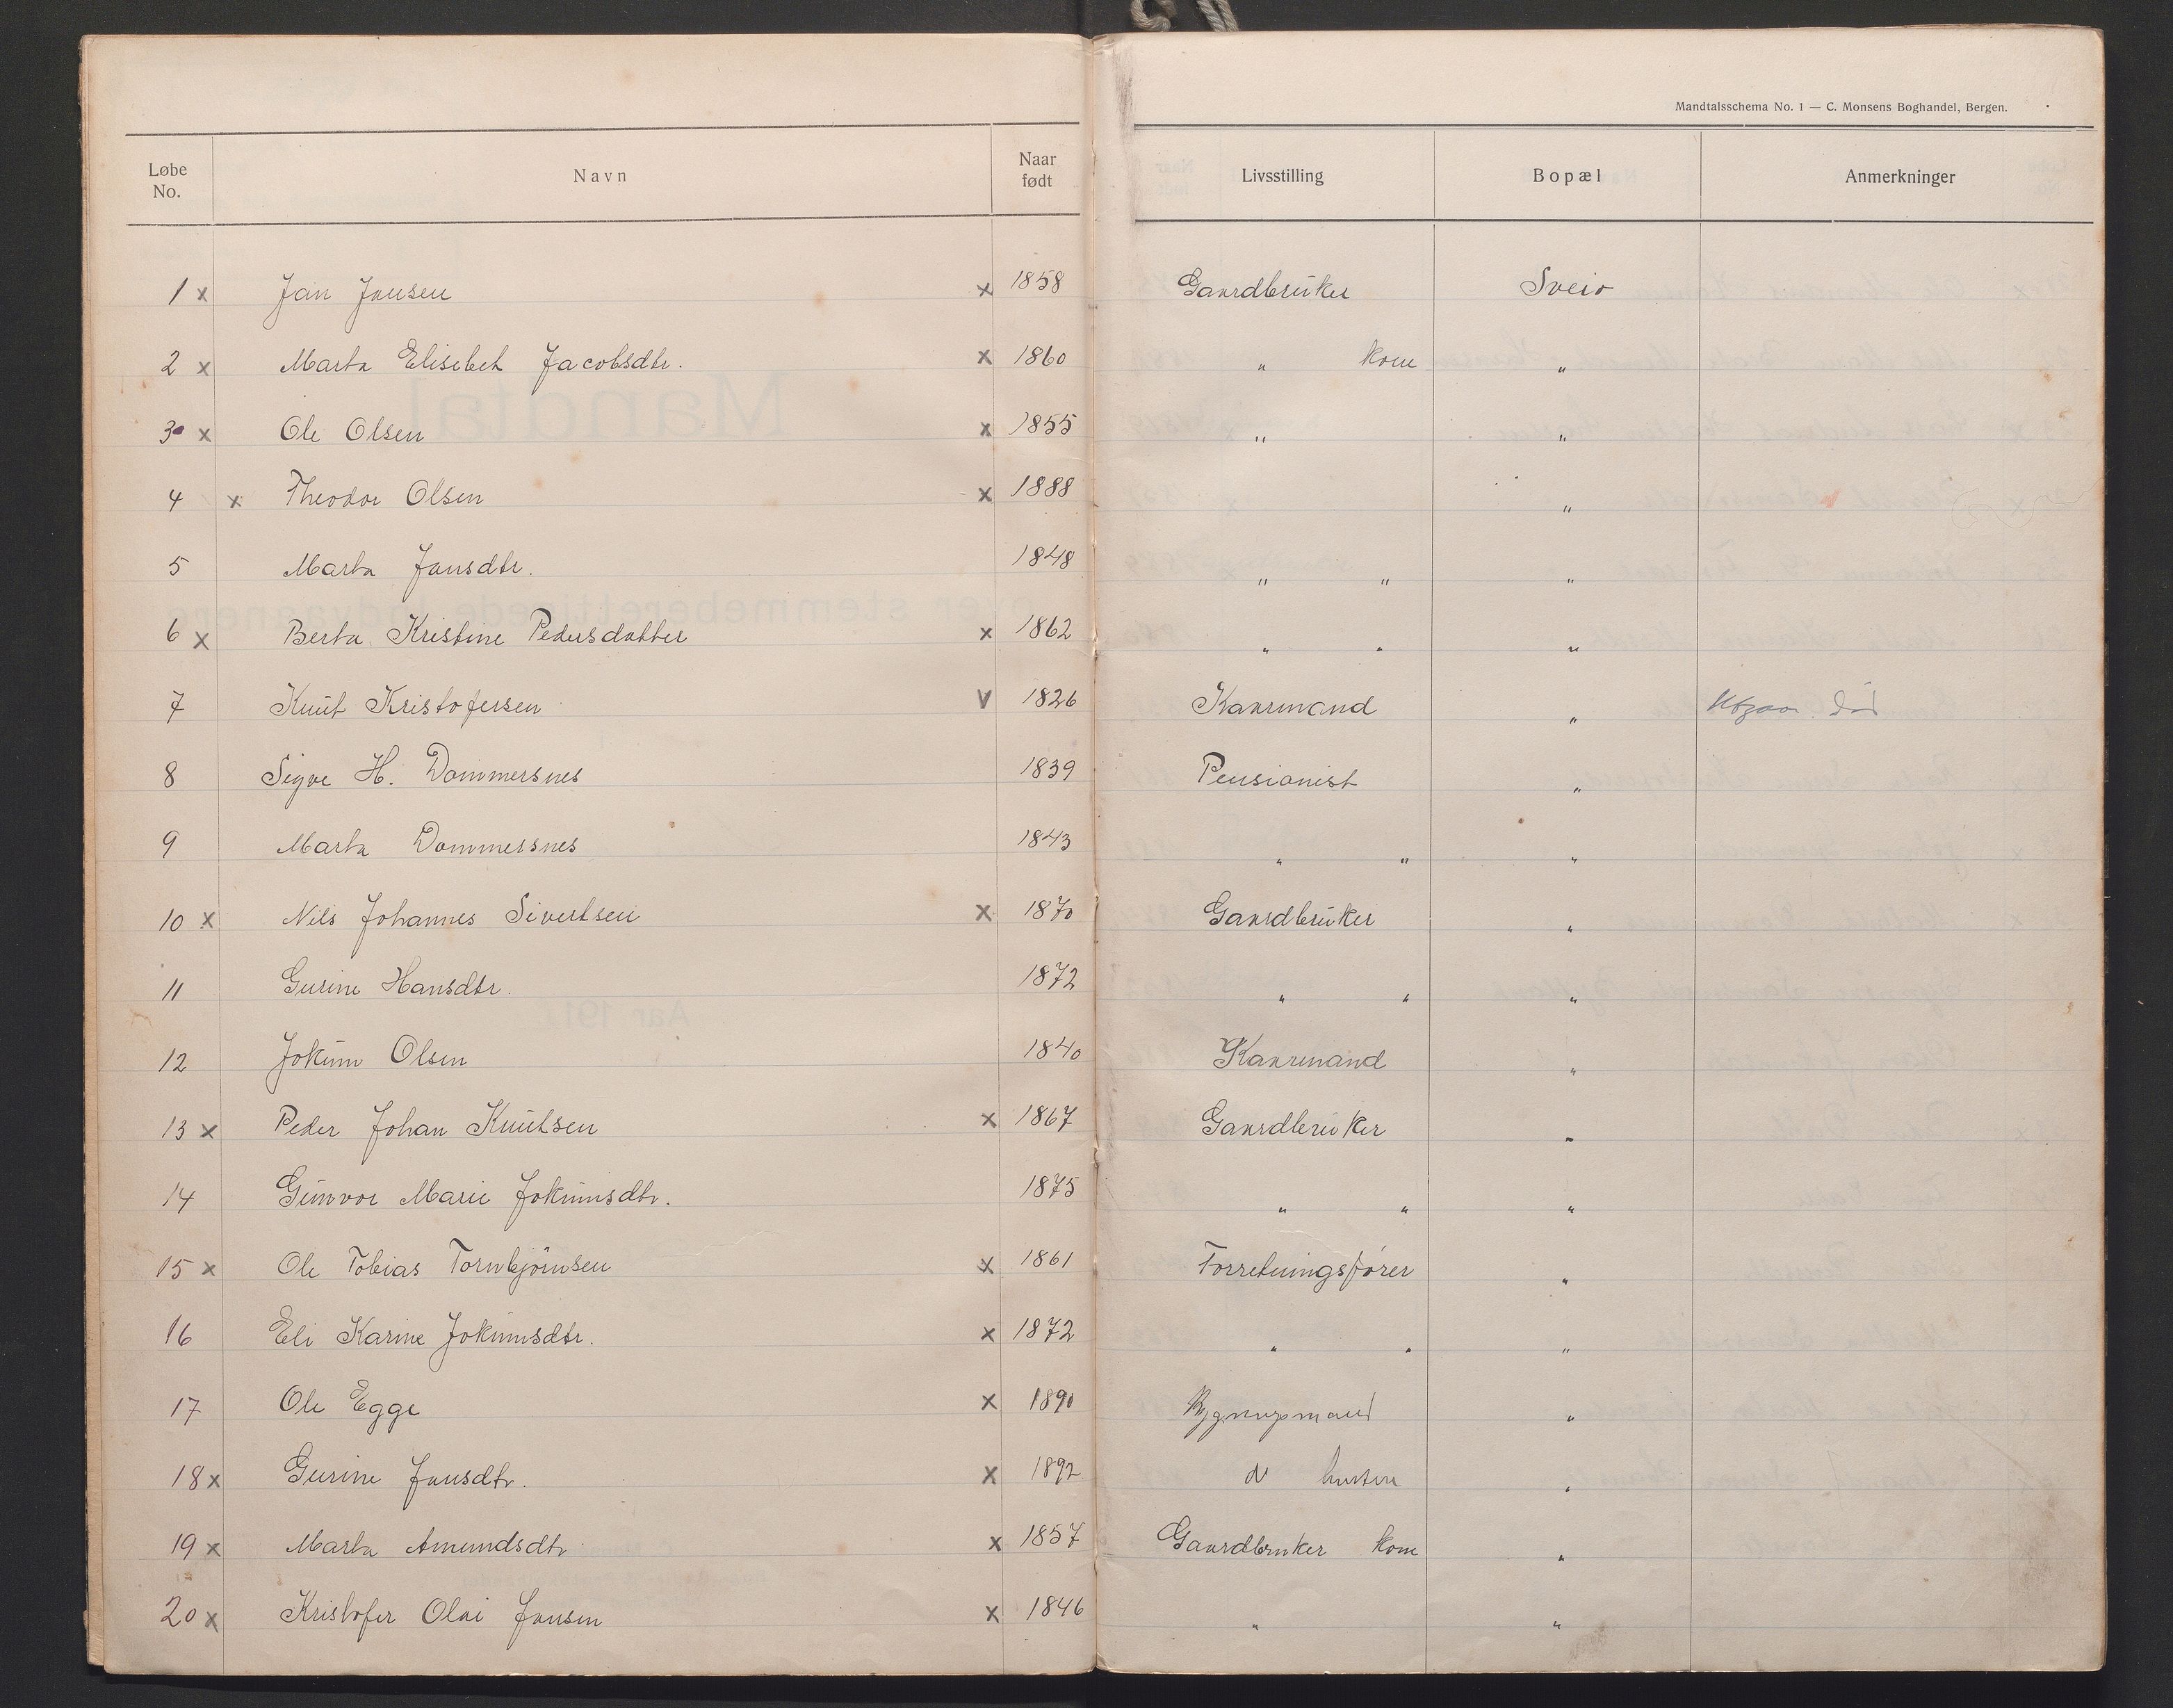 Mandtalsschema No. 1 — C. Monsens Boghandel, Bergen.
Løbe No. Navn Naar født Livsstilling Bopæl Anmerkninger
1 x Jan Jansen x 1858 Gaardbruker Sveio
2 x Marta Elisebet Jacobsdtr. x 1860 " kone "
3 x Ole Olsen x 1855 " "
4 x Theodor Olsen x 1888 "
5 Marta Jansdtr. 1848 " " "
6 x Berta Kristine Pedersdatter x 1862 " " "
7 Knut Kristofersen V 1826 Kaarmand " Utgaar død
8 Sigve H. Dommersnes 1839 Pensionist "
9 Marta Dommersnes 1843 " " "
10 x Nils Johannes Sivertsen x 1870 Gaardbruker "
11 Gurine Hansdtr. 1872 " " "
12 Jokum Olsen 1840 Kaarmand "
13 x Peder Johan Knutsen x 1867 Gaardbruker "
14 Gunvor Marie Jokumsdtr. 1875 " " "
15 x Ole Tobias Tornbjörnsen x 1861 Forretningsfører "
16 Eli Karine Jokumsdtr. x 1872 " " "
17 Ole Egge x 1890 "
18 x Gurine Jansdtr. x 1892 "
19 x Marta Amundsdtr x 1857 Gaardbruker kone "
20 x Kristofer Olai Jansen x 1846 " "